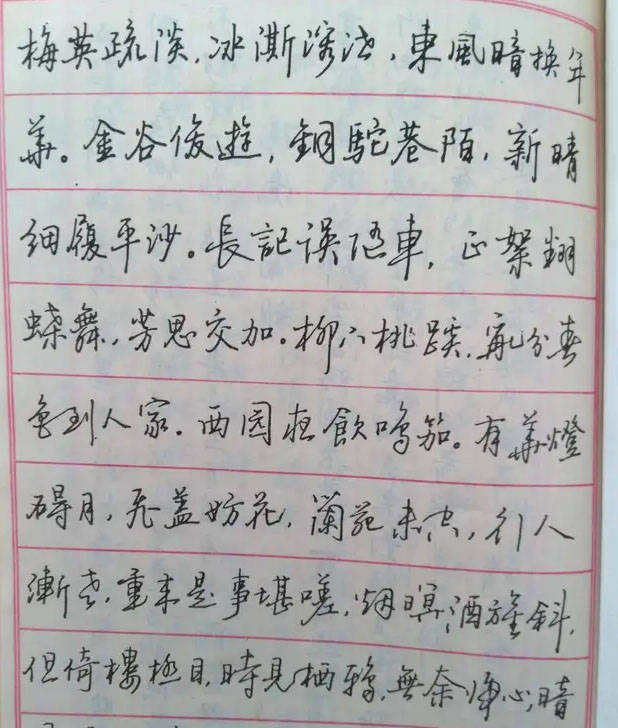 梅英疏淡，冰澌溶洩，東風暗換年
華。金谷俊遊，銅駝巷陌，新晴
細履平沙。長記誤隨車，正絮翻
蝶舞，芳思交加。柳下桃蹊，亂分春
色到人家。西園夜飲鳴笳。有華燈
礙月，飛蓋妨花，蘭苑未空，行人
漸老，重来是事堪嗟，烟暝酒旗斜，
但倚樓極目，時見栖鴉，無奈歸心，暗